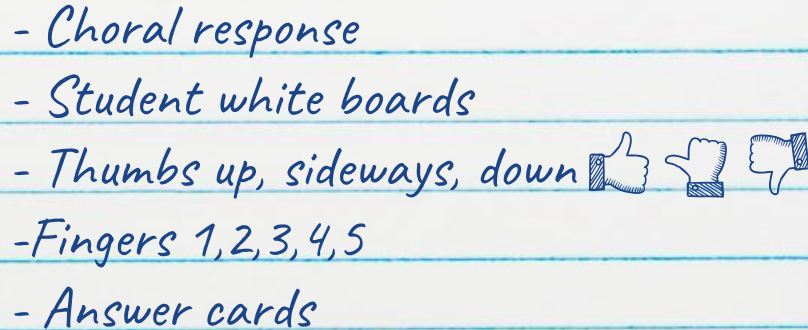 - Choral response
- Student white boards
- Thumbs up, sideways, down
-Fingers 1,2,3,4,5
- Answer cards